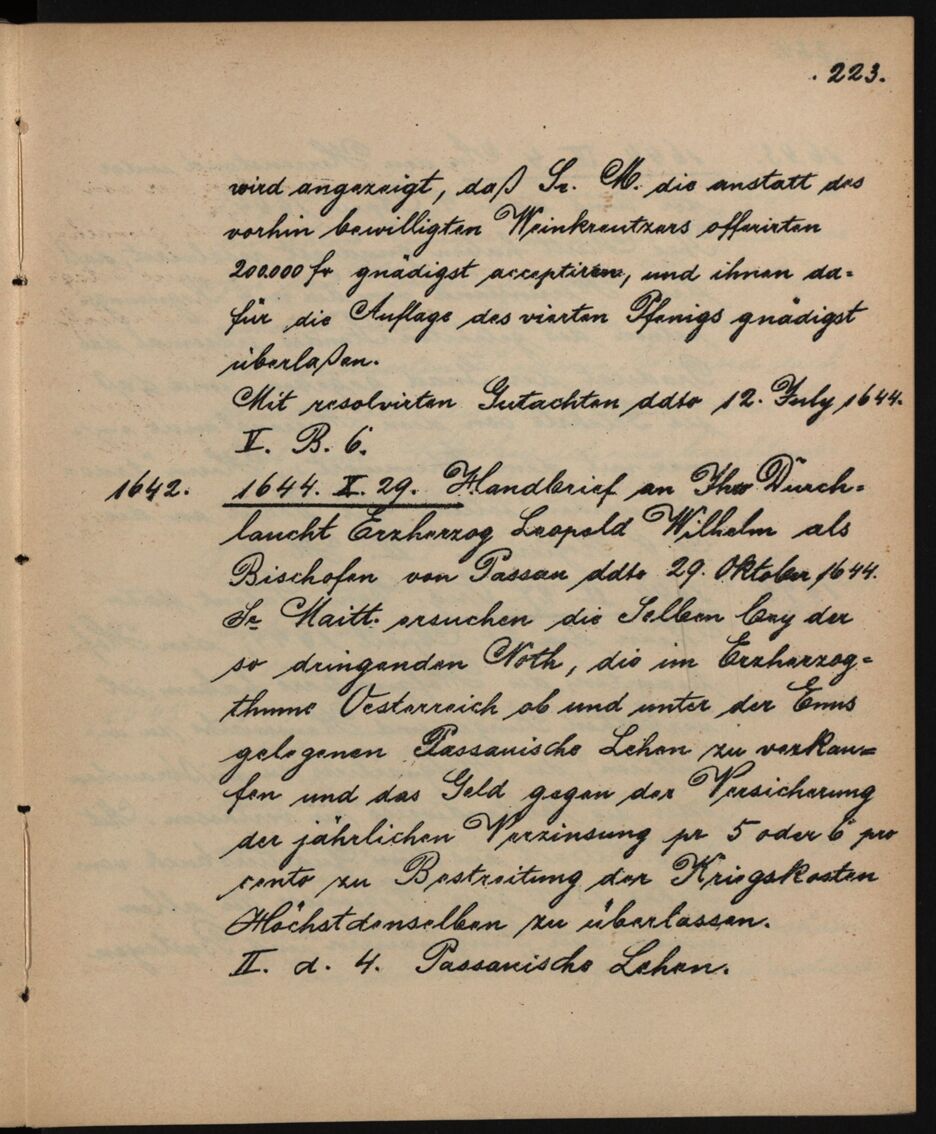 . 223.
wird angezeigt, daß Sr. M. die anstatt des
vorhin bewilligten Weinkreutzers offerirten
200.000 fr gnädigst acceptiren, und ihnen da=
für die Auflage des vierten Pfenigs gnädigst
überlaßen.
Mit resolvirten Gutachten ddto 12. July 1644.
V. B. 6.
1642. 1644. X. 29. Handbrief an Ihro Durch=
laucht Erzherzog Leopold Wilhelm als
Bischofen von Passau ddto 29. Oktober 1644.
Sr Maitt. ersuchen die Selben bey der
so dringenden Noth, die im Erzherzog=
thume Oesterreich ob und unter der Enns
gelegenen Passauische Lehen zu verkau=
fen und das Geld gegen der Versicherung
der jährlichen Verzinsung pr 5 oder 6 pro
cento zu Bestreitung der Kriegskosten
Höchstdenselben zu überlassen.
II. d. 4. Passauische Lehen.